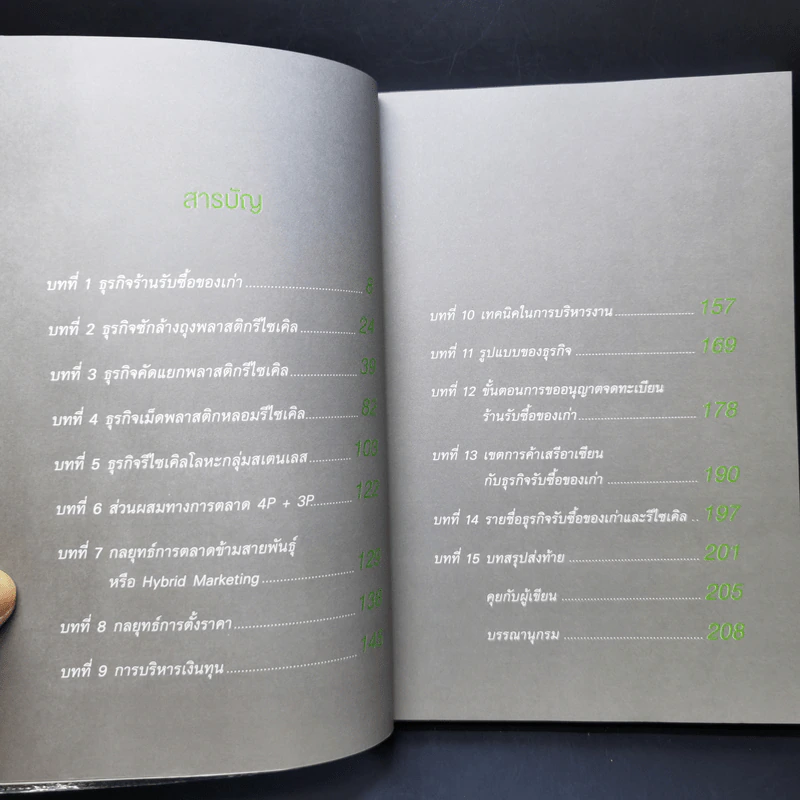 สารบัญ
บทที่ 1 ธุรกิจร้านรับซื้อของเก่า
บทที่ 2 ธุรกิจซักล้างถุงพลาสติกรีไซเคิล 24
บทที่ 3 ธุรกิจคัดแยกพลาสติกรีไซเคิล
บทที่ 4 ธุรกิจเม็ดพลาสติกหลอมรีไซเคิล
บทที่ 5 ธุรกิจรีไซเคิลโลหะกลุ่มสเตนเลส
บทที่ 6 ส่วนผสมทางการตลาด 4P + 3P
บทที่ 7 กลยุทธ์การตลาดข้ามสายพันธุ์
หรือ Hybrid Marketing
บทที่ 8 กลยุทธ์การตั้งราคา
บทที่ 9 การบริหารเงินทุน
บทที่ 10 เทคนิคในการบริหารงาน 157
บทที่ 11 รูปแบบของธุรกิจ 169
บทที่ 12 ขั้นตอนการขออนุญาตจดทะเบียน
ร้านรับซื้อของเก่า 178
บทที่ 13 เขตการค้าเสรีอาเซียน
กับธุรกิจรับซื้อของเก่า 190
บทที่ 14 รายชื่อธุรกิจรับซื้อของเก่าและรีไซเคิล 197
บทที่ 15 บทสรุปส่งท้าย 201
คุยกับผู้เขียน 205
บรรณานุกรม 208